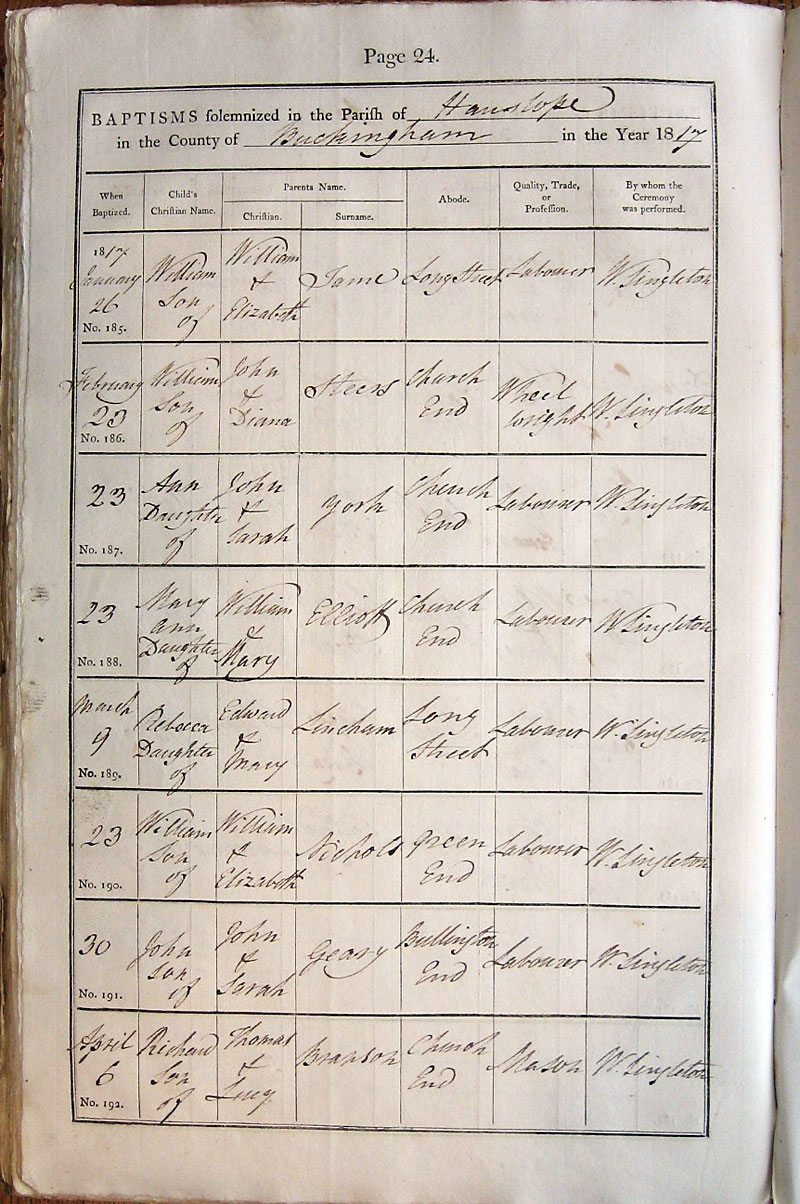 Page 24.
BAPTISMS solemnized in the Parish of Hanslope
in the County of Buckingham in the Year 1817
When Baptized. Child's Christian Name. Parents Name. Christian. Surname. Abode. Quality, Trade, or Profession. By whom the Ceremony was performed.
1817 January 26 No. 185. William Son of William & Elizabeth Tame Long Street Labourer W. Singleton
February 23 No. 186. William Son of John & Diana Steers Church End Wheel wright W. Singleton
23 No. 187. Ann Daughter of John & Sarah York Church End Labourer W. Singleton
23 No. 188. Mary Ann Daughter of William & Mary Elliott Church End Labourer W. Singleton
March 9 No. 189. Rebecca Daughter of Edward & Mary Lincham Long Street Labourer W. Singleton
23 No. 190. William Son of William & Elizabeth Nichols Green End Labourer W. Singleton
30 No. 191. John Son of John & Sarah Geary Bullington End Labourer W. Singleton
April 6 No. 192. Richard Son of Thomas & Lucy Branson Church End Mason W. Singleton